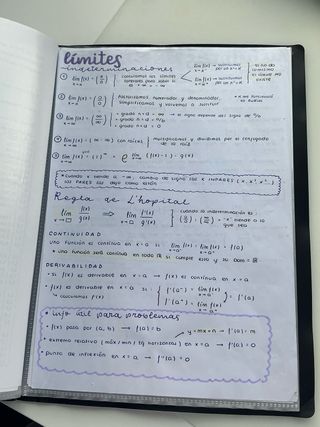 límites
indeterminaciones
① lím f(x) = (k/0) calculamos los límites laterales para saber si
x→a
② lím f(x) = (0/0) factorizamos numerador y denominador,
x→a simplificamos y volvemos a sustituir
③ lím f(x) = (∞/∞) = grado n>d → ∞ → el signo depende del signo de
x→∞ = grado n=d →
= grado n<d = 0
④ lím f(x) = (∞ - ∞) con raíces multiplicamos y dividimos por el conjugado
x→∞ de la raíz
· cuando x tiende a -∞, cambio de signo los x IMPARES (x, x³, x⁵...)
los PARES los dejo como están
Regla de L'hopital
lím f(x)/g(x) ⟹ lím f'(x)/g'(x) cuando la indeterminación es:
(0/0) ; (∞/∞) "x" tiende a lo
que sea
CONTINUIDAD
una función es continua en x=a si lím f(x) = lím f(x) = f(a)
· una función será continua en todo ℝ si cumple esto y su Dom = ℝ
DERIVABILIDAD
· si f(x) es derivable en x=a → f(x) es continua en x=a
· f(x) es derivable en x=a si f'(a⁻) = lím f'(x)
y calculamos f'(x) f'(a⁺) = lím f'(x) = f'(a)
· info útil para problemas
· f(x) pasa por (a, b) → f(a) = b
y = mx + n → f'(a) = m
· extremo relativo (máx / mín / tg horizontal) en x=a → f'(a) = 0
· punto de inflexión en x=a → f''(a) = 0